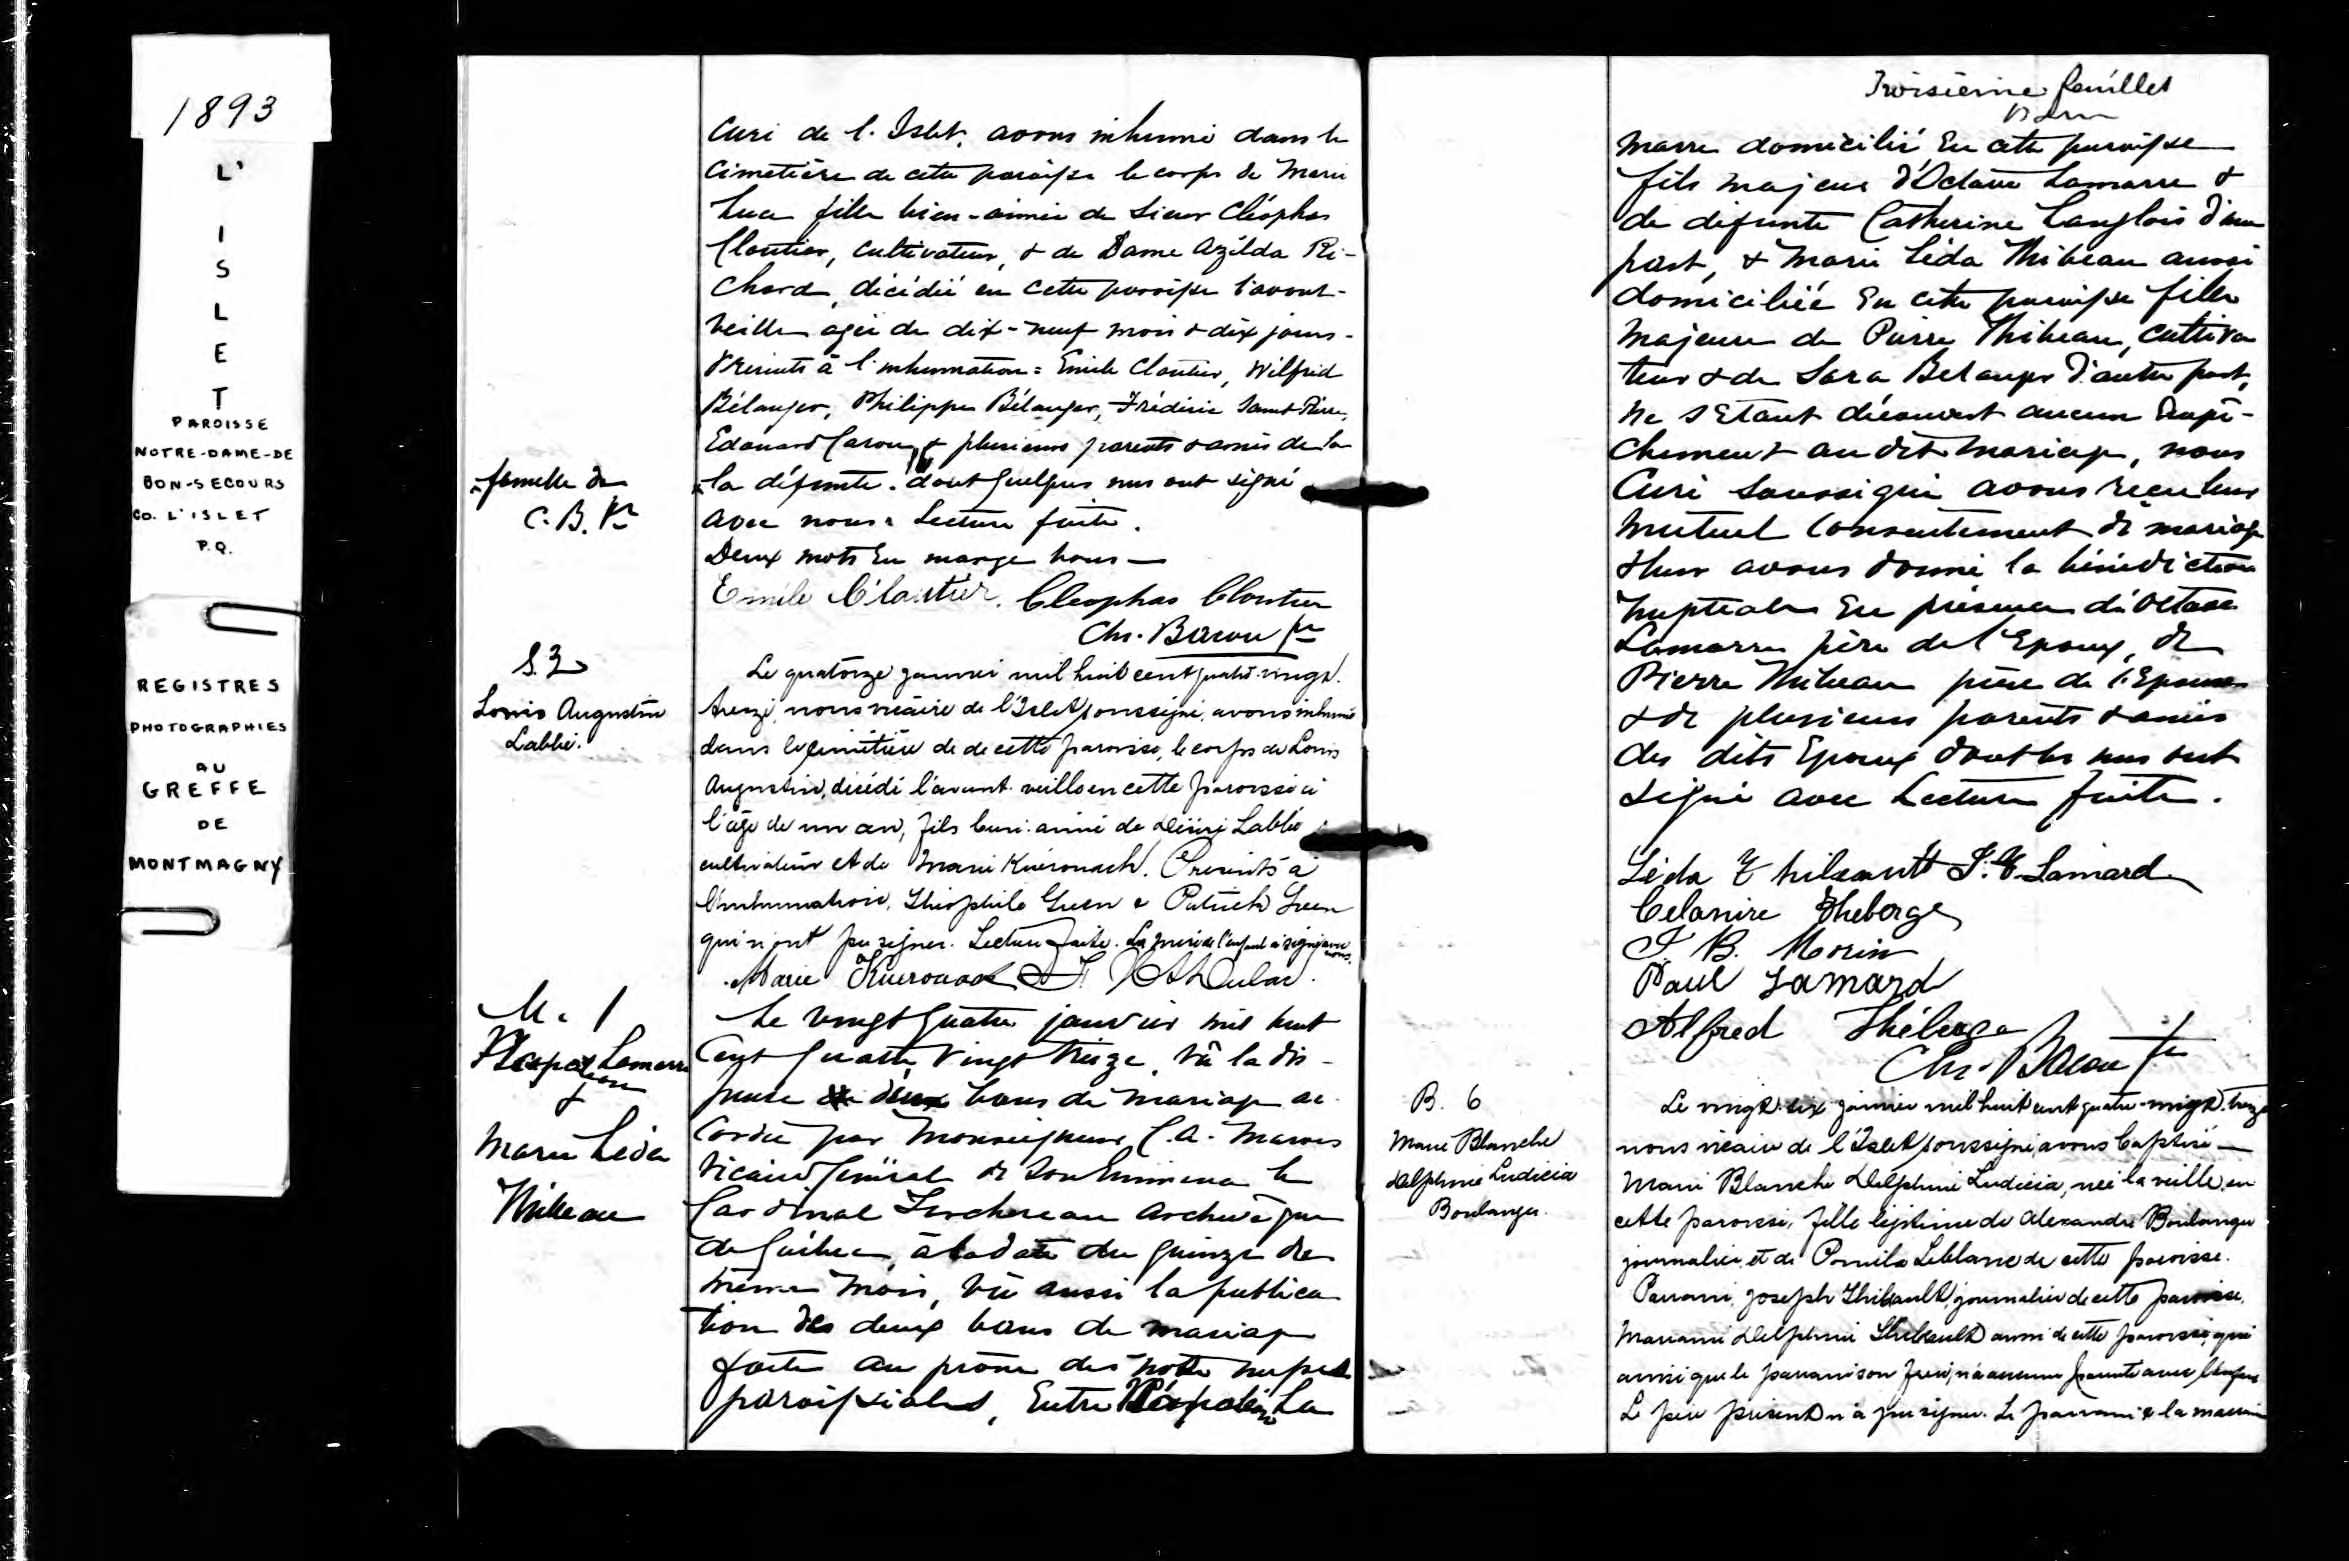 1893
L'
I
S
L
E
T
PAROISSE
NOTRE-DAME-DE
BON-SECOURS
CO. L'ISLET
P.Q.
REGISTRES
PHOTOGRAPHIES
AU
GREFFE
DE
MONTMAGNY
Curé de l'Islet, avons inhumé dans le
Cimetière de cette paroisse le corps de Marie
Luce fille bien-aimée de Sieur Cléophas
Cloutier, Cultivateur, & de Dame Azilda Ri-
chard, décédée en cette paroisse l'avant-
veille agée de dix-neuf mois & dix jours-
Présents à l'inhumation: Emile Cloutier, Wilfrid
Bélanger, Philippe Bélanger, Frédéric Saint-Pierre,
Edouard Caron, & plusieurs parents & amis de la
famille de
C. B. Ptr
la défunte. dont quelques uns ont signé
avec nous. Lecture faite.
Deux mots en marge bons —
Emile Cloutier. Cleophas Cloutier
Chs. Bacon ptr
S. 3
Louis Augustin
Labbé.
Le quatorze janvier mil huit cent quatre-vingt.
treize, nous vicaire de l'Islet soussigné, avons inhumé
dans le cimetière de de cette paroisse, le corps de Louis
Augustin, décédé l'avant-veille en cette paroisse à
l'âge de un an, fils bien-aimé de Désiré Labbé
cultivateur et de Marie Kuérouack. Présents à
l'inhumation, Théophile Guen & Patrick Guen
qui n'ont pu signer. Lecture faite. La mère de l'enfant a signé avec
nous.
Marie Kuerouack
M. 1
Napoléon Lamarre
&
Marie Léda
Thibeau
Le vingt quatre janvier mil huit
Cent quatre Vingt treize, Vû la dis-
pense de deux bans de mariage ac-
cordée par Monseigneur C. A. Marois
Vicaire Général de Son Eminence le
Cardinal Taschereau Archevêque
de Québec, à la date du quinze du
même mois, Vû aussi la publica
tion des deux bans de mariage
faite au prône des notre messes
paroissiales, Entre Napoléon La
Troisième feuillet
marre domicilié En cette paroisse
fils majeur d'Octave Lamarre &
de défunte Catherine Langlois d'une
part, & Marie Léda Thibeau aussi
domiciliée En cette paroisse fille
Majeure de Pierre Thibeau, cultiva
teur & de Sara Belanger d'autre part,
Ne s'Etant découvert aucun Empê-
chement au dit mariage, nous
Curé Soussigné avons reçu leur
Mutuel Consentement de mariage
& leur avons donné la bénédiction
Nuptiale En présence d'Octave
Lamarre père de l'Epoux, de
Pierre Thibeau père de l'Epouse
& de plusieurs parents & amis
des dits Epoux dont les uns ont
signé avec Lecture faite.
Léda Thibeault Lamard
Celanire Theberge
J. B. Morin
Paul Lamard
Alfred Théberge
Chs. Bacon ptr
B. 6
Marie Blanche
Delphine Ludicia
Boulanger.
Le vingt-six janvier mil huit cent quatre-vingt-treize
nous vicaire de l'Islet soussigné avons baptisé —
Marie Blanche Delphine Ludicia, née la veille en
cette paroisse, fille légitime de Alexandre Boulanger
journalier et de Pamila Leblanc de cette paroisse.
Parrain, Joseph Thibault, journalier de cette paroisse,
Marraine Delphine Thibault aussi de cette paroisse, qui
ainsi que le parrain son frère, n'a aucune parenté avec l'enfant
Le père présent n'a pu signer. Le parrain & la marraine